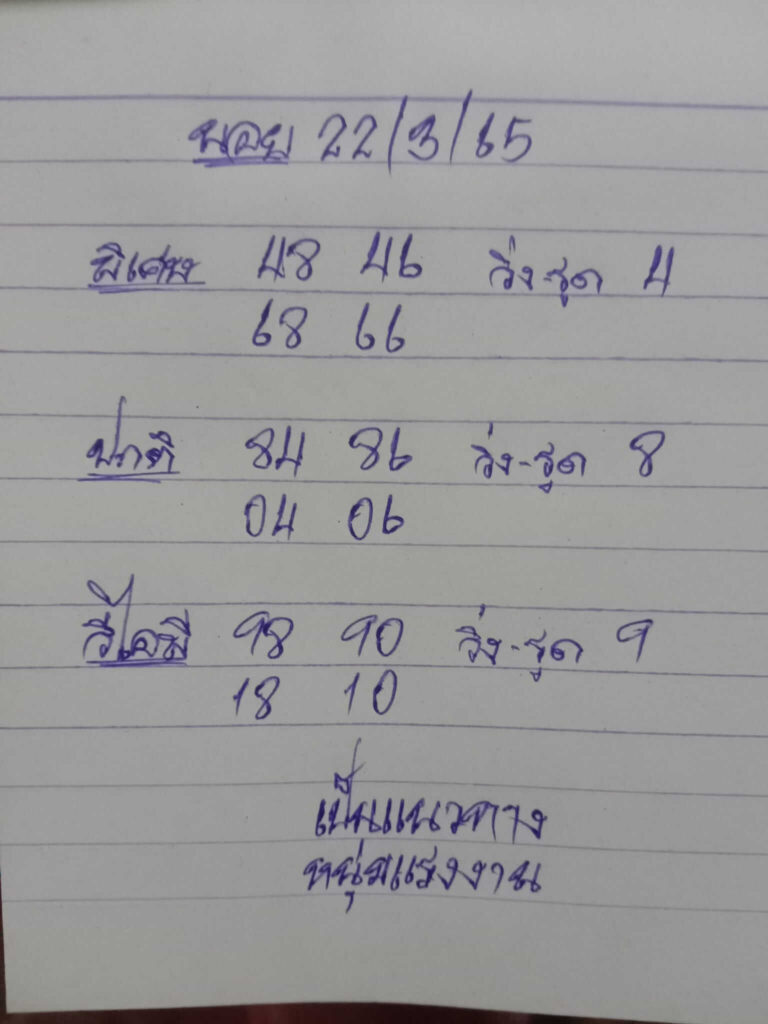 นอย 22/3/65
พิเศษ 48 46 วิ่ง-รูด 4
68 66
ปกติ 84 86 วิ่ง-รูด 8
04 06
วีไอพี 98 90 วิ่ง-รูด 9
18 10
เป็นแนวทาง
หนุ่มแรงงาน